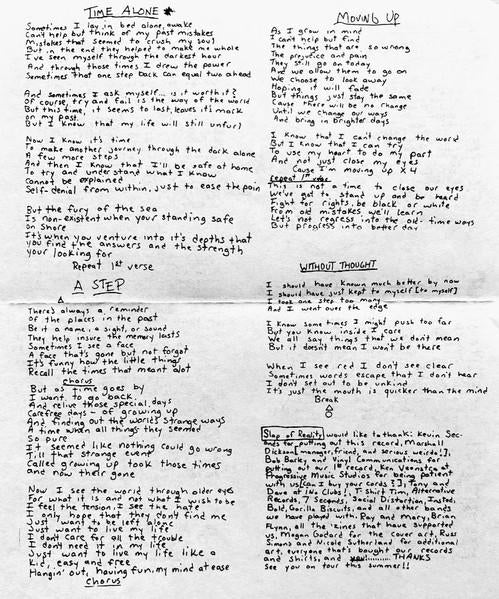 TIME ALONE
Sometimes I lay in bed alone, awake
Can't help but think of my past mistakes
Mistakes that seemed to crush my soul
But in the end they helped to make me whole
I've seen myself through the darkest hour
And through those times I drew the power
Sometimes that one step back can equal two ahead
And sometimes I ask myself... is it worth it?
Of course, try and fail is the way of the world
But this time, it seems to last, leaves it's mark
on my past..
But I know that my life will still unfurl
Now I know it's time
To make another journey through the dark alone
A few more steps
And then I know that I'll be safe at home
To try and understand what I know
Cannot be explained
Self-denial from within, just to ease the pain
But the fury of the sea
Is non-existent when your standing safe
on shore
It's when you venture into it's depths that
you find the answers and the strength
your looking for
Repeat 1st verse
A STEP
There's always a reminder
Of the places in the past
Be it a name, a sight, or sound
They help insure the memory lasts
Sometimes I see a face
A face that's gone but not forgot
It's funny how the little things
Recall the times that meant alot
Chorus
But as time goes by
I want to go back,
And relive those special days
Carefree days - of growing up
And finding out the world's strange ways
A time when all things they seemed
So pure
It seemed like nothing could go wrong
Till that strange event
Called growing up took those times
And now their gone
Now I see the world through older eyes
For what it is and not what I wish to be
I feel the tension I see the hate
I only hope that they don't find me
Just want to be left alone
Just want to live my life
I don't care for all the trouble
I don't need it in my life
Just want to live my life like a
Kid, easy and free
Hangin' out, having fun, my mind at ease
Chorus
MOVING UP
As I grow in mind
I can't help but find
The things that are so wrong
The prejudice and pain
They still go on today
And we allow them to go on
We choose to look away
Hoping it will fade
But things just stay the same
Cause there will be no change
Until we change our ways
And bring in brighter days
I know that I can't change the world
But I know that I can try
To use my heart to do my part
And not just close my eyes
Cause I'm moving up X4
repeat 1st verse
This is not a time to close our eyes
We've got to stand up and be heard
Fight for rights, be black or white
From old mistakes we'll learn
Let's not regress into the old-time ways
But progress into better day
WITHOUT THOUGHT
I should have known much better by now
I should have just kept to myself [to myself]
I took one step too many
And I went over the edge
I know some times I might push too far
But you know inside I care
We all say things that we don't mean
But it doesn't mean I won't be there
When I see red I don't see clear
Sometimes words escape that I don't hear
I don't set out to be unkind
It's just the mouth is quicker than the mind
Break
Slap of Reality would like to thank: Kevin Sec-
onds for putting out this record, Marshall
Dickson [manager, friend, and serious weirdo!],
Bob Barley and Vinyl Communications for
putting out our 1st record, Ken Veenstra at
Progressive Music Studios for being patient
with us (God it's your cords ? ?), Tony and
Dave at (No Clubs), T Shirt Tim, Alternative
Records, 7 Seconds, Social Distortion, Insted,
Bold, Gorilla Biscuits, and all other bands
we have played with, Ray and Mary, Brian
Flynn, all the 'zines that have supported
us, Megan Godard for the cover art, Russ
Simons and Nicole Sutherland for additional
art, everyone that's bought our records
and shirts, and ......... THANKS
See you on tour this summer!!